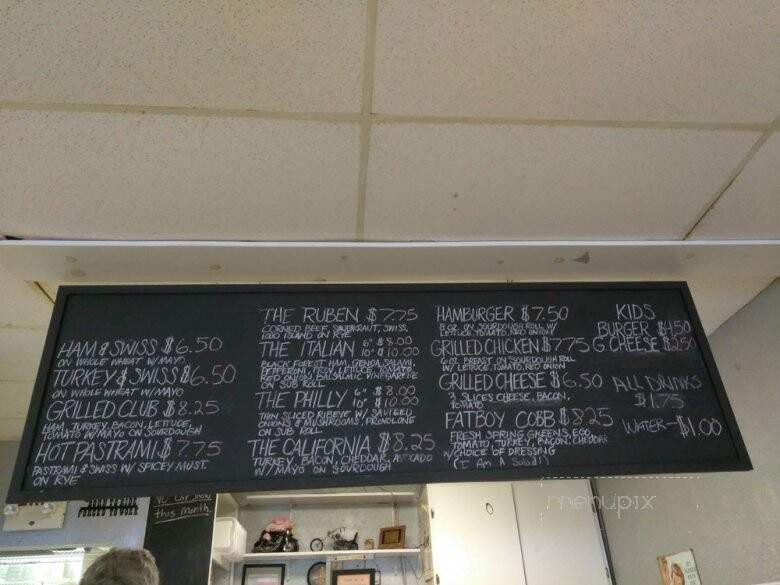 HAM & SWISS $6.50
ON WHOLE WHEAT W/MAYO
TURKEY & SWISS $6.50
ON WHOLE WHEAT W/MAYO
GRILLED CLUB $8.25
HAM, TURKEY, BACON, LETTUCE,
TOMATO W/MAYO ON SOURDOUGH
HOT PASTRAMI $7.75
PASTRAMI & SWISS W/ SPICEY MUST.
ON RYE
THE RUBEN $7.75
CORNED BEEF, SAUERKRAUT, SWISS,
1000 ISLAND ON RYE
THE ITALIAN 6" $8.00
10" $10.00
BLACK FOREST HAM, GENOA SALAMI,
PEPPERONI, PROV, LETTUCE, TOMATO,
RED ONION, BALSAMIC VINEGARETTE
ON SUB ROLL
THE PHILLY 6" $8.00
10" $10.00
THIN SLICED RIBEYE W/ SAUTEED
ONIONS & MUSHROOMS, PROVOLONE
ON SUB ROLL
THE CALIFORNIA $8.25
TURKEY, BACON, CHEDDAR, AVOCADO
W/MAYO ON SOURDOUGH
HAMBURGER $7.50
8 OZ. ON SOURDOUGH ROLL W/
LETTUCE, TOMATO, RED ONION
GRILLED CHICKEN $7.75
6 OZ. BREAST ON SOURDOUGH ROLL
W/ LETTUCE, TOMATO, RED ONION
GRILLED CHEESE $6.50
3 SLICES CHEESE, BACON,
TOMATO
FATBOY COBB $8.25
FRESH SPRING GREENS, EGG,
TOMATO, TURKEY, BACON, CHEDDAR
W/CHOICE OF DRESSING
(I Am A Salad!)
KIDS
BURGER $4.50
G. CHEESE $3.50
ALL DRINKS
$1.75
WATER - $1.00
this month.
menupix